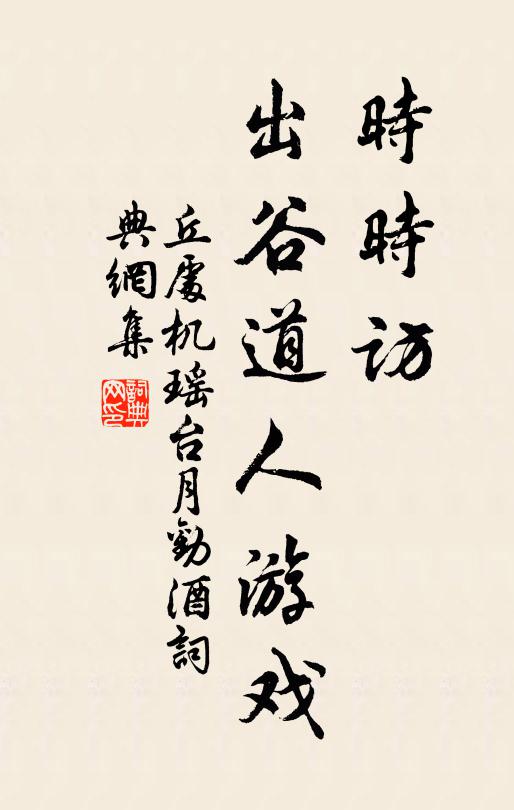 時時訪
出谷道人游戏
丘處机瑶台月勸酒詞
典網集
詞典
网印